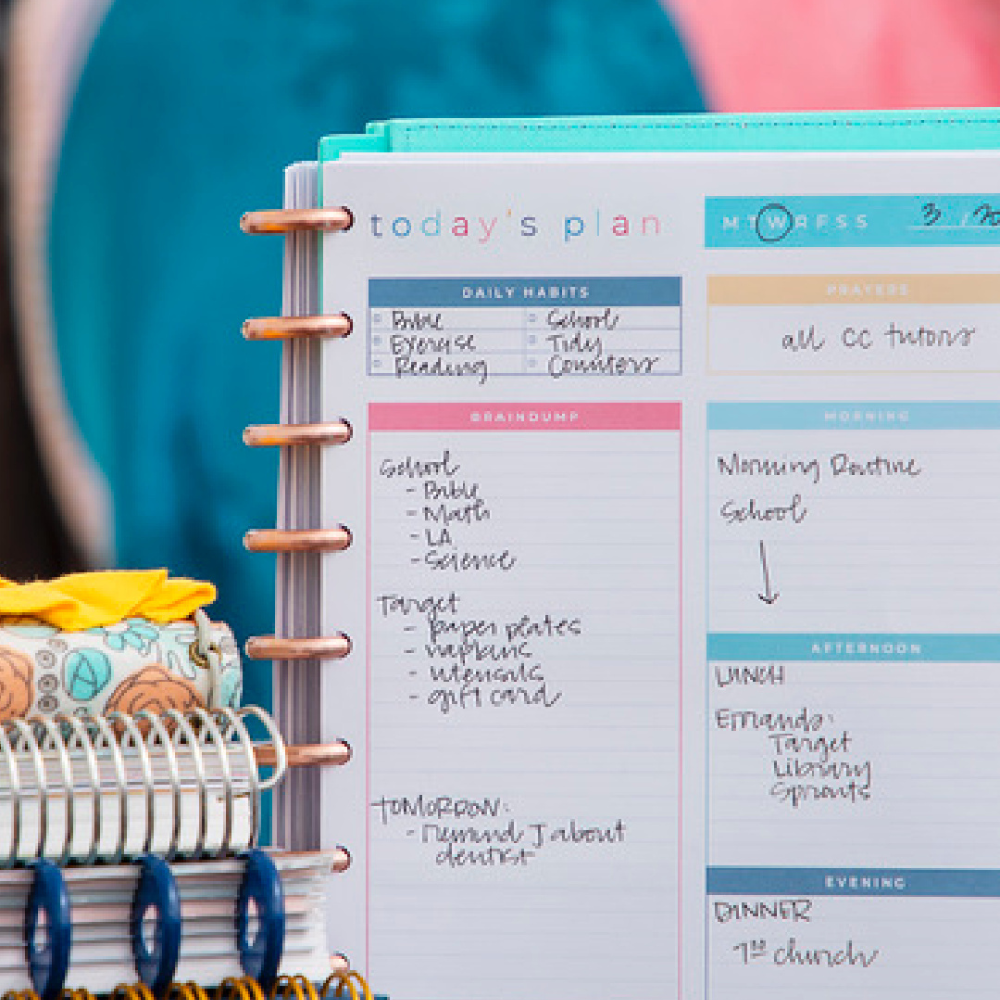 today's plan
M T W R F S S 3 / 30
DAILY HABITS
Bible School
Exercise Tidy
Reading Counters
BRAINDUMP
School
- Bible
- Math
- LA
- Science
Target
- paper plates
- napkins
- utensils
- gift card
TOMORROW:
- Remind J about
dentist
PRAYERS
all CC tutors
MORNING
Morning Routine
School
AFTERNOON
LUNCH
Errands:
Target
Library
Sprouts
EVENING
DINNER
church